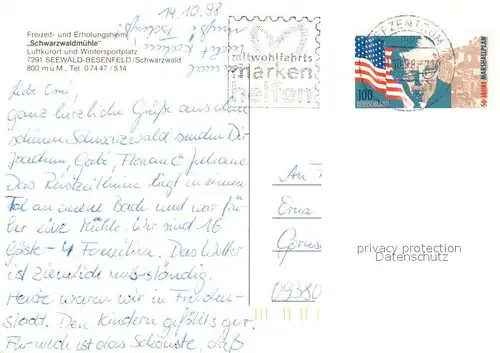 14.10.98
Freizeit- und Erholungsheim
„Schwarzwaldmühle"
Luftkurort und Wintersportplatz
7291 SEEWALD-BESENFELD/Schwarzwald
800 m ü.M., Tel. 07447/514
mit wohlfahrts
marken
helfen
100
DEUTSCHLAND
50 JAHRE MARSHALLPLAN
Liebe Omi!
ganz herzliche Grüße aus dem
schönen Schwarzwald senden Dir
Joachim, Gabi, Florian & Juliane
Das liegt in einem
Tal an einem Bach und war frü-
her eine Mühle. Wir sind 16
Gäste - 4 Familien. Das Wetter
ist ziemlich unbeständig.
Heute waren wir in Freuden-
stadt. Den Kindern gefällts gut.
Für mich ist das Schönste, daß
An
Erna
09380
privacy protection
Datenschutz